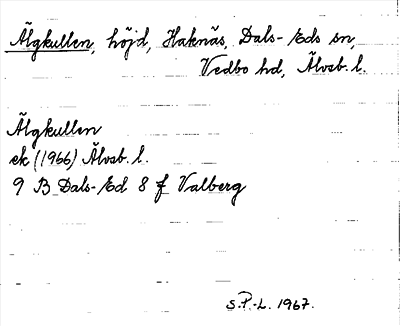 Älgkullen, höjd, Haknäs, Dals-Eds sn,
Vedbo hd, Älvsb. l.
Älgkullen
ek (1966) Älvsb. l.
9 B Dals-Ed 8 f Valberg
S.P.-L. 1967.